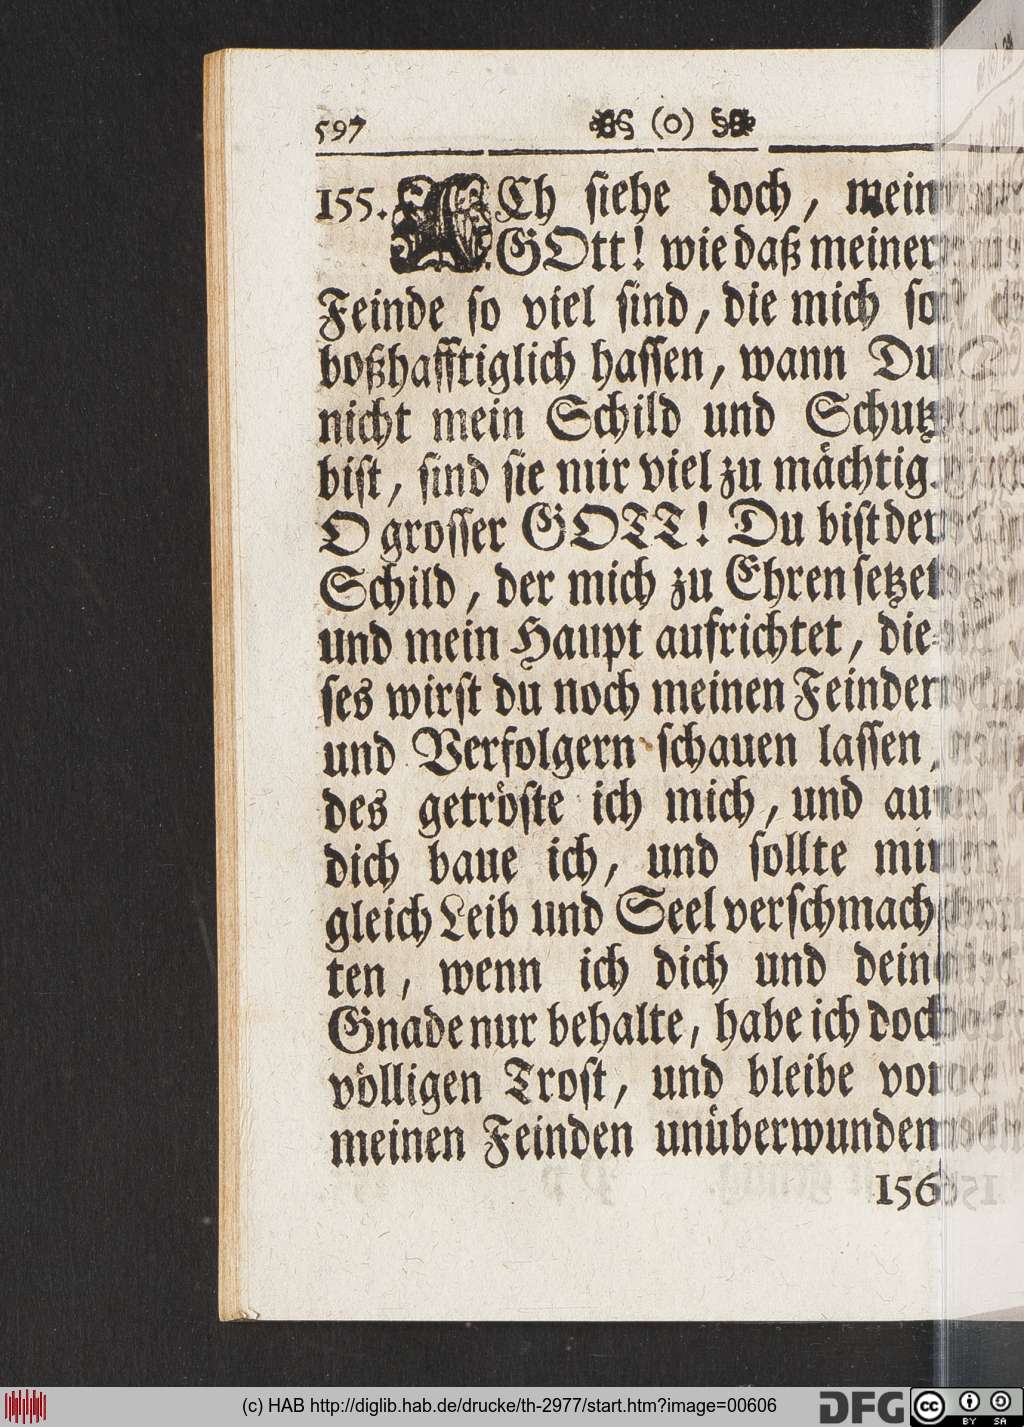 597 (o)
155. ACh siehe doch, mein
GOtt! wie daß meiner
Feinde so viel sind, die mich so
boßhafftiglich hassen, wann Du
nicht mein Schild und Schutz
bist, sind sie mir viel zu mächtig.
O grosser GOTT! Du bist der
Schild, der mich zu Ehren setzet
und mein Haupt aufrichtet, die-
ses wirst du noch meinen Feinden
und Verfolgern schauen lassen,
des getröste ich mich, und au
dich baue ich, und sollte mir
gleich Leib und Seel verschmach
ten, wenn ich dich und dein
Gnade nur behalte, habe ich doch
völligen Trost, und bleibe vor
meinen Feinden unüberwunden
156
(c) HAB http://diglib.hab.de/drucke/th-2977/start.htm?image=00606
DFG
cc BY SA